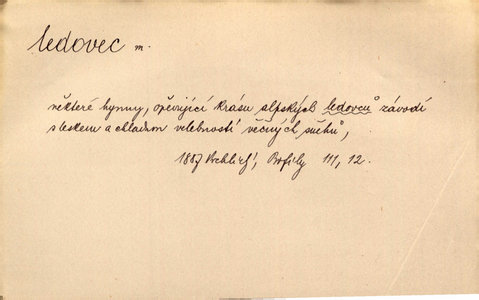 ledovec m.
některé hymny, opěvující krásu alpských ledovců závodí
s leskem a chladnou velebností věčných sněhů,
1887 Vrchlický, Profily 111, 12.